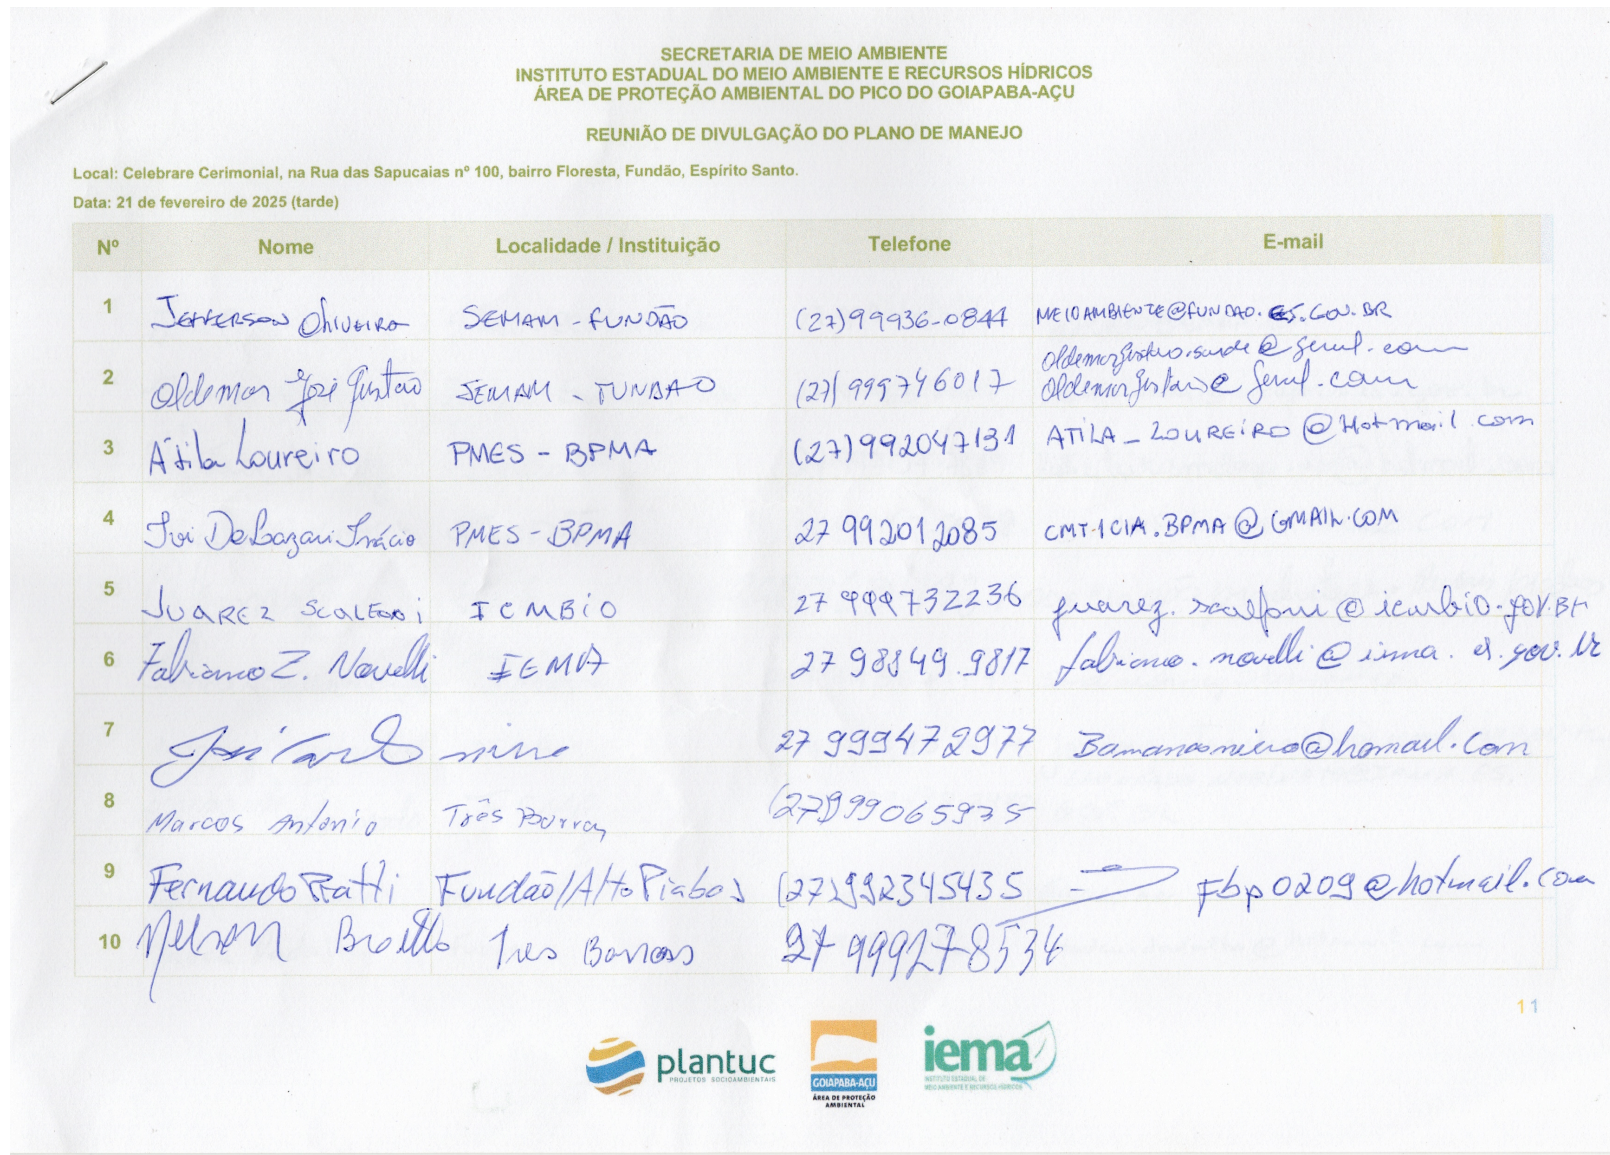 SECRETARIA DE MEIO AMBIENTE
INSTITUTO ESTADUAL DO MEIO AMBIENTE E RECURSOS HÍDRICOS
ÁREA DE PROTEÇÃO AMBIENTAL DO PICO DO GOIAPABA-AÇU
REUNIÃO DE DIVULGAÇÃO DO PLANO DE MANEJO
Local: Celebrare Cerimonial, na Rua das Sapucaias nº 100, bairro Floresta, Fundão, Espírito Santo.
Data: 21 de fevereiro de 2025 (tarde)
Nº Nome Localidade / Instituição Telefone E-mail
1 JEFFERSON OLIVEIRA SEMAM - FUNDÃO (27)99936-0844 MEIOAMBIENTE@FUNDAO.ES.GOV.BR
2 Oldemar José Gustavo SEMAM - FUNDAO (27)999746017
3 Átila Loureiro PMES - BPMA (27)992047131 ATILA_LOUREIRO@Hotmail.com
4 PMES - BPMA 27 992012085 CMT-1CIA.BPMA@GMAIL.COM
5 JUAREZ ICMBIO 27 999732236 juarez.scalfoni@icmbio.gov.br
6 Fabiano Z. Novelli IEMA 27 98849.9817 fabiano.novelli@iema.es.gov.br
7 27 999472977
8 Marcos Antonio Três Barras (27)999065935
9 Fernando Pratti Fundão/Alto Piabas (27)992345435 Fbp0209@hotmail.com
10 Nelson Tres Barras 27 999278534
11
plantuc
PROJETOS SOCIOAMBIENTAIS
GOIAPABA-AÇU
ÁREA DE PROTEÇÃO
AMBIENTAL
iema
INSTITUTO ESTADUAL DE
MEIO AMBIENTE E RECURSOS HÍDRICOS